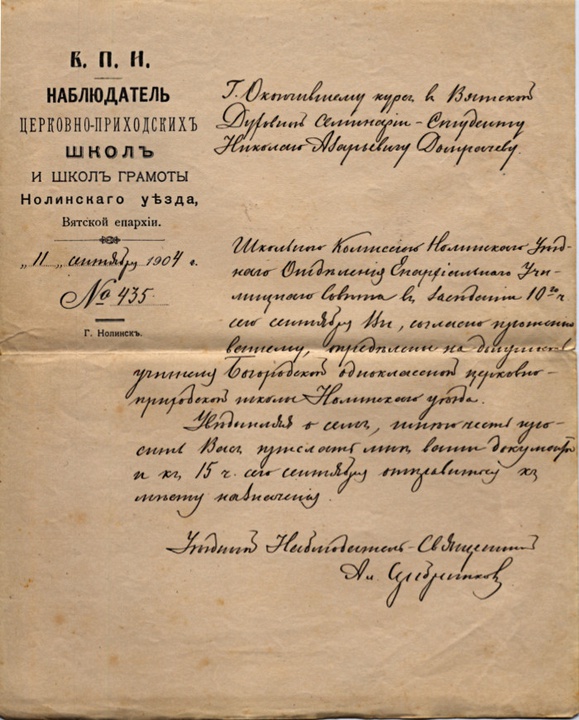 В. П. И.
НАБЛЮДАТЕЛЬ
ЦЕРКОВНО-ПРИХОДСКИХЪ
ШКОЛЪ
И ШКОЛЪ ГРАМОТЫ
Нолинскаго уѣзда,
Вятской епархіи.
„11„ сентября 1904 г.
№ 435
Г. Нолинскъ.
Г. Окончившему курсъ въ Вятской
Духовной Семинаріи - Студенту
Николаю Азарьевичу Домрачеву.
Школьною Комиссіею Нолинскаго Уѣзд-
наго Отдѣленія Епархіальнаго Учи-
лищнаго Совѣта въ засѣданіи 10го ч.
сего сентября Вы, согласно прошенію
Вашему, опредѣлены на должность
учителя Богородской одноклассной церковно-
приходской школы Нолинскаго уѣзда.
Увѣдомляя о семъ, имѣю честь про-
сить Васъ прислать мнѣ ваши документы
и къ 15 ч. сего сентября отправиться къ
мѣсту назначенія.
Уѣздный Наблюдатель - Священникъ
Ал.